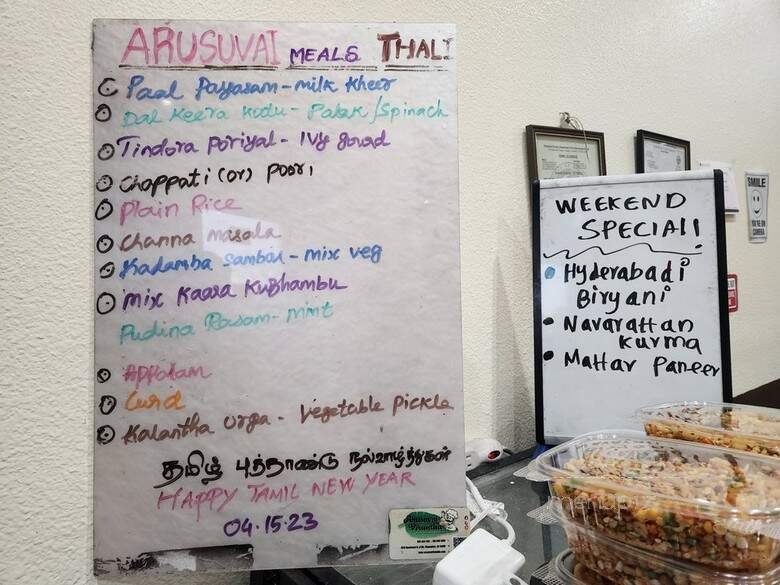 ARUSUVAI MEALS THALI
Paal Payasam - milk kheer
Dal Keera Kodu - Palak / Spinach
Tindora Poriyal - Ivy gourd
Chappati (or) Poori
Plain Rice
Channa masala
Kadamba Sambar - mix veg
Mix Kaara Kuzhambu
Pudina Rasam - mint
Appalam
Curd
Kalantha urga - Vegetable Pickle
தமிழ் புத்தாண்டு நல்வாழ்த்துகள்
HAPPY TAMIL NEW YEAR
04.15.23
WEEKEND
SPECIAL!
Hyderabadi
Biryani
Navarattan
Kurma
Mattar Paneer
SMILE
YOU'RE ON
CAMERA